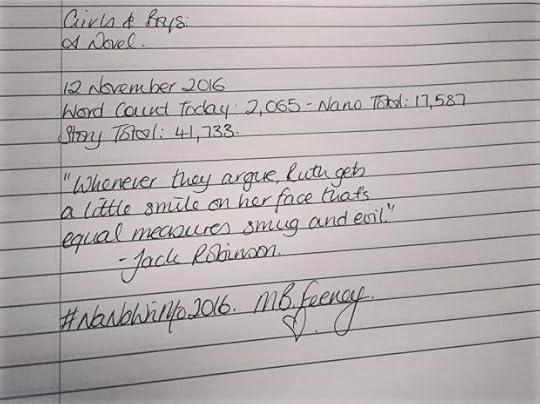 Girls & Boys:
A Novel.
12 November 2016
Word Count Today: 2,065 - Nano Total: 17,587
Story Total: 41,733.
"Whenever they argue, Ruth gets
a little smile on her face that's
equal measures smug and evil."
- Jack Robinson.
#NaNoWriMo2016. M.B. Feeney.